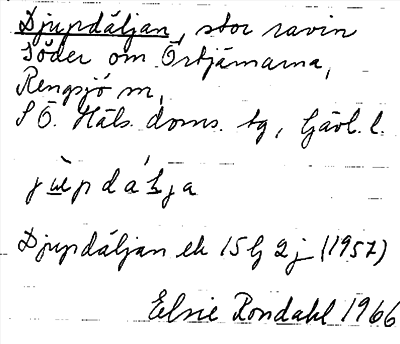 Djupdäljan, stor ravin
söder om Örtjärnarna,
Rengsjö m,
S Ö. Häls. doms. tg, Gävl. l.
jùpdálja
Djupdäljan ek 15G 2j (1957)
Elsie Rondahl 1966